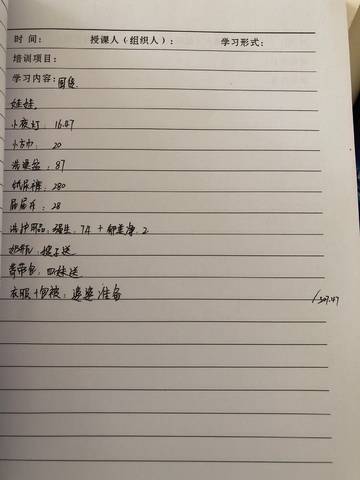 时 间： 授课人（组织人）： 学习形式：
培训项目：
学习内容：囤货
娃娃
小夜灯：16.47
小方巾：20
洗澡盆：87
纸尿裤：280
屁屁巾：28
洗护用品：强生：74 + 郁美净：2
奶瓶：嫂子送
背带仓：四妹送
衣服+包被：婆婆准备
/507.47